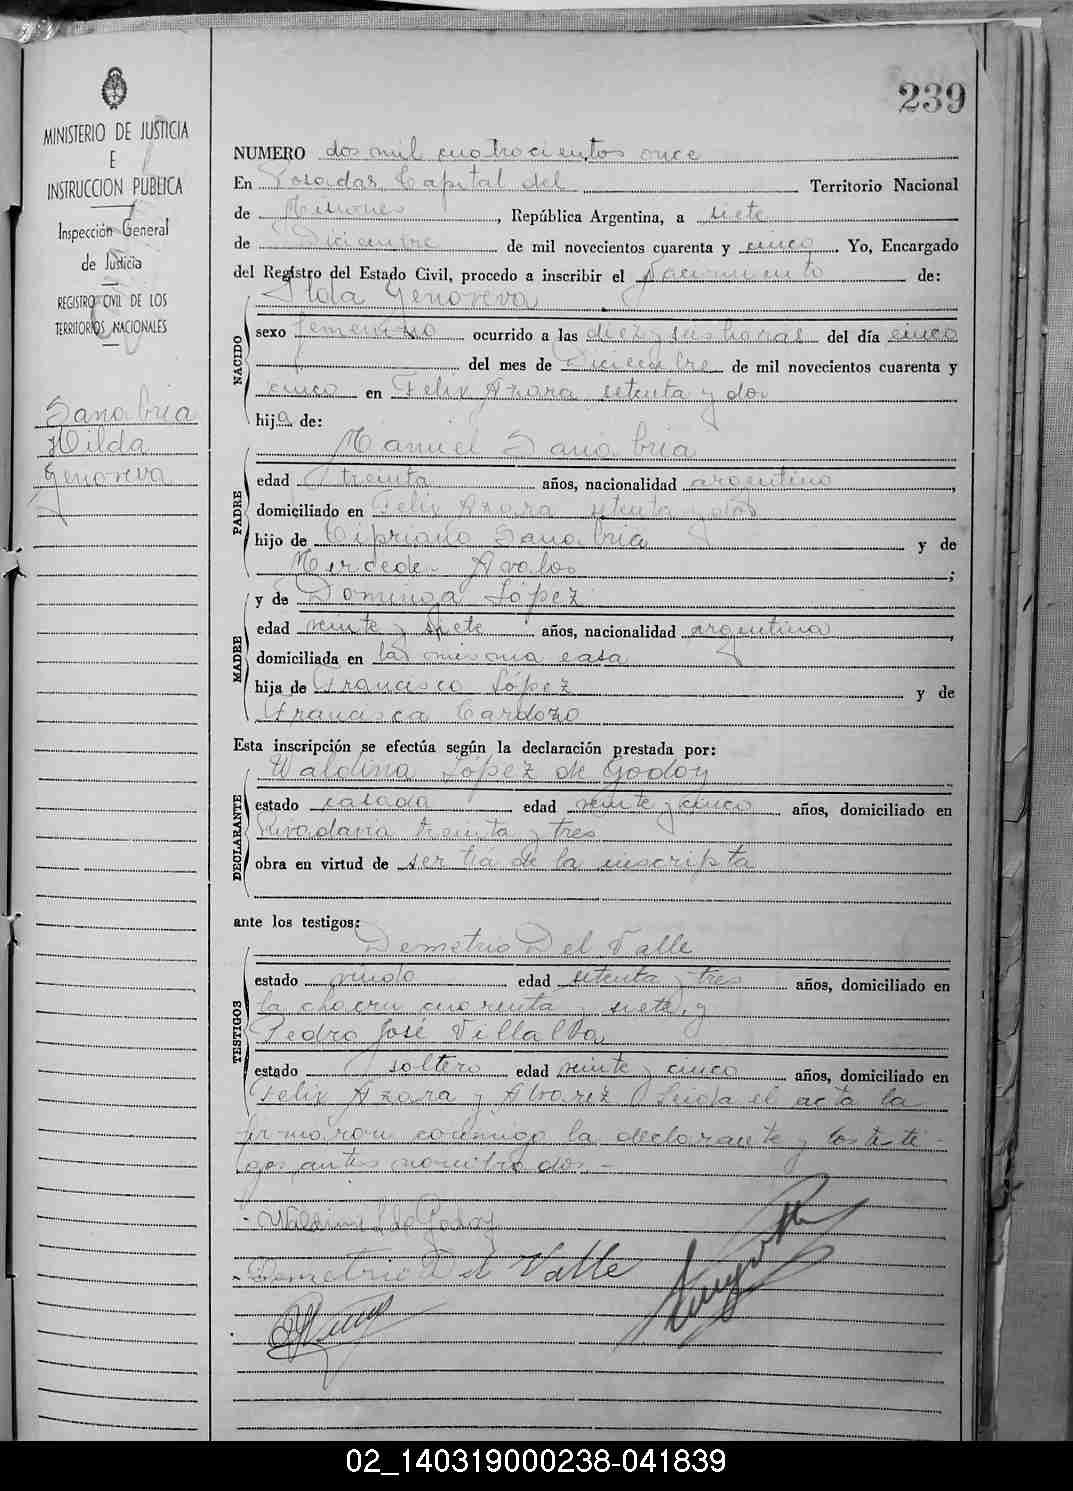 239
MINISTERIO DE JUSTICIA
E
INSTRUCCION PUBLICA
Inspección General
de Justicia
REGISTRO CIVIL DE LOS
TERRITORIOS NACIONALES
Sanabria
Hilda
Genoveva
NUMERO dos mil cuatrocientos once
En Posadas Capital del Territorio Nacional
de Misiones, República Argentina, a siete
de Diciembre de mil novecientos cuarenta y cinco. Yo, Encargado
del Registro del Estado Civil, procedo a inscribir el nacimiento de:
Genoveva
NACIDO
sexo femenino ocurrido a las diez y seis horas del día cinco
del mes de Diciembre de mil novecientos cuarenta y
cinco en Felix Azara setenta y dos
hija de:
Manuel Sanabria
PADRE
edad treinta años, nacionalidad argentino,
domiciliado en Felix Azara setenta y dos
hijo de Cipriano Sanabria y de
Mercedes Avalos;
y de Dominga López
MADRE
edad veinte y siete años, nacionalidad argentina,
domiciliada en la misma casa
hija de Francisco López y de
Francisca Cardozo
Esta inscripción se efectúa según la declaración prestada por:
Waldina López de Godoy
DECLARANTE
estado casada edad veinte y cinco años, domiciliado en
Rivadavia treinta y tres
obra en virtud de ser tía de la inscripta
ante los testigos:
Demetrio Del Valle
TESTIGOS
estado viudo edad setenta y tres años, domiciliado en
la chacra cuarenta siete, y
Pedro José Villalba
estado soltero edad veinte y cinco años, domiciliado en
Felix Azara y Alvarez Leida el acta la
firmaron conmigo la declarante y los testi-
gos antes nombrados.-
Waldina L de Godoy
Demetrio Del Valle
02_140319000238-041839